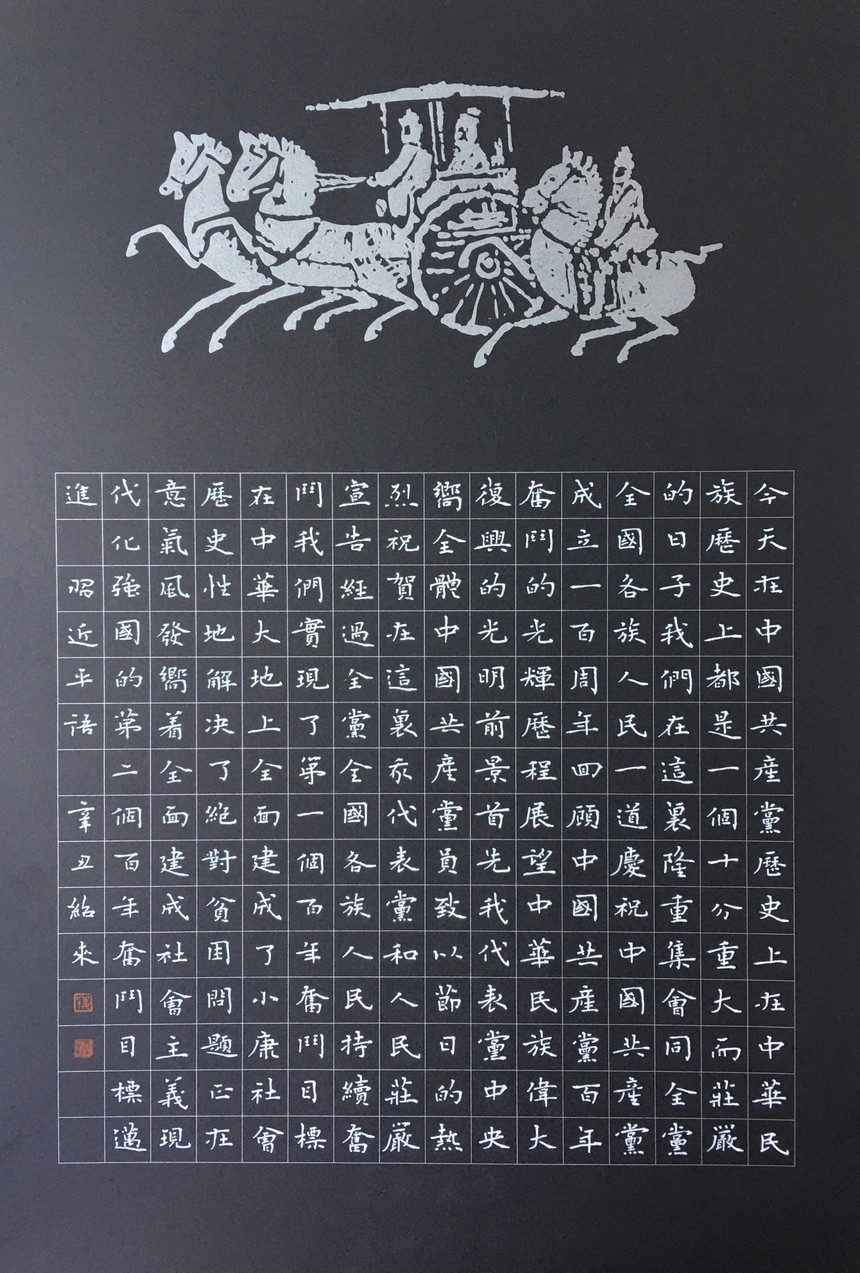 今天在中國共産黨歷史上在中華民
族歷史上都是一個十分重大而莊嚴
的日子我們在這裏隆重集會同全黨
全國各族人民一道慶祝中國共産黨
成立一百周年回顧中國共産黨百年
奮鬥的光輝歷程展望中華民族偉大
復興的光明前景首先我代表黨中央
嚮全體中國共産黨員致以節日的熱
烈祝賀在這裏我代表黨和人民莊嚴
宣告經過全黨全國各族人民持續奮
鬥我們實現了第一個百年奮鬥目標
在中華大地上全面建成了小康社會
歷史性地解决了絶對貧困問題正在
意氣風發嚮着全面建成社會主義現
代化強國的第二個百年奮鬥目標邁
進 習近平語 辛丑紹來